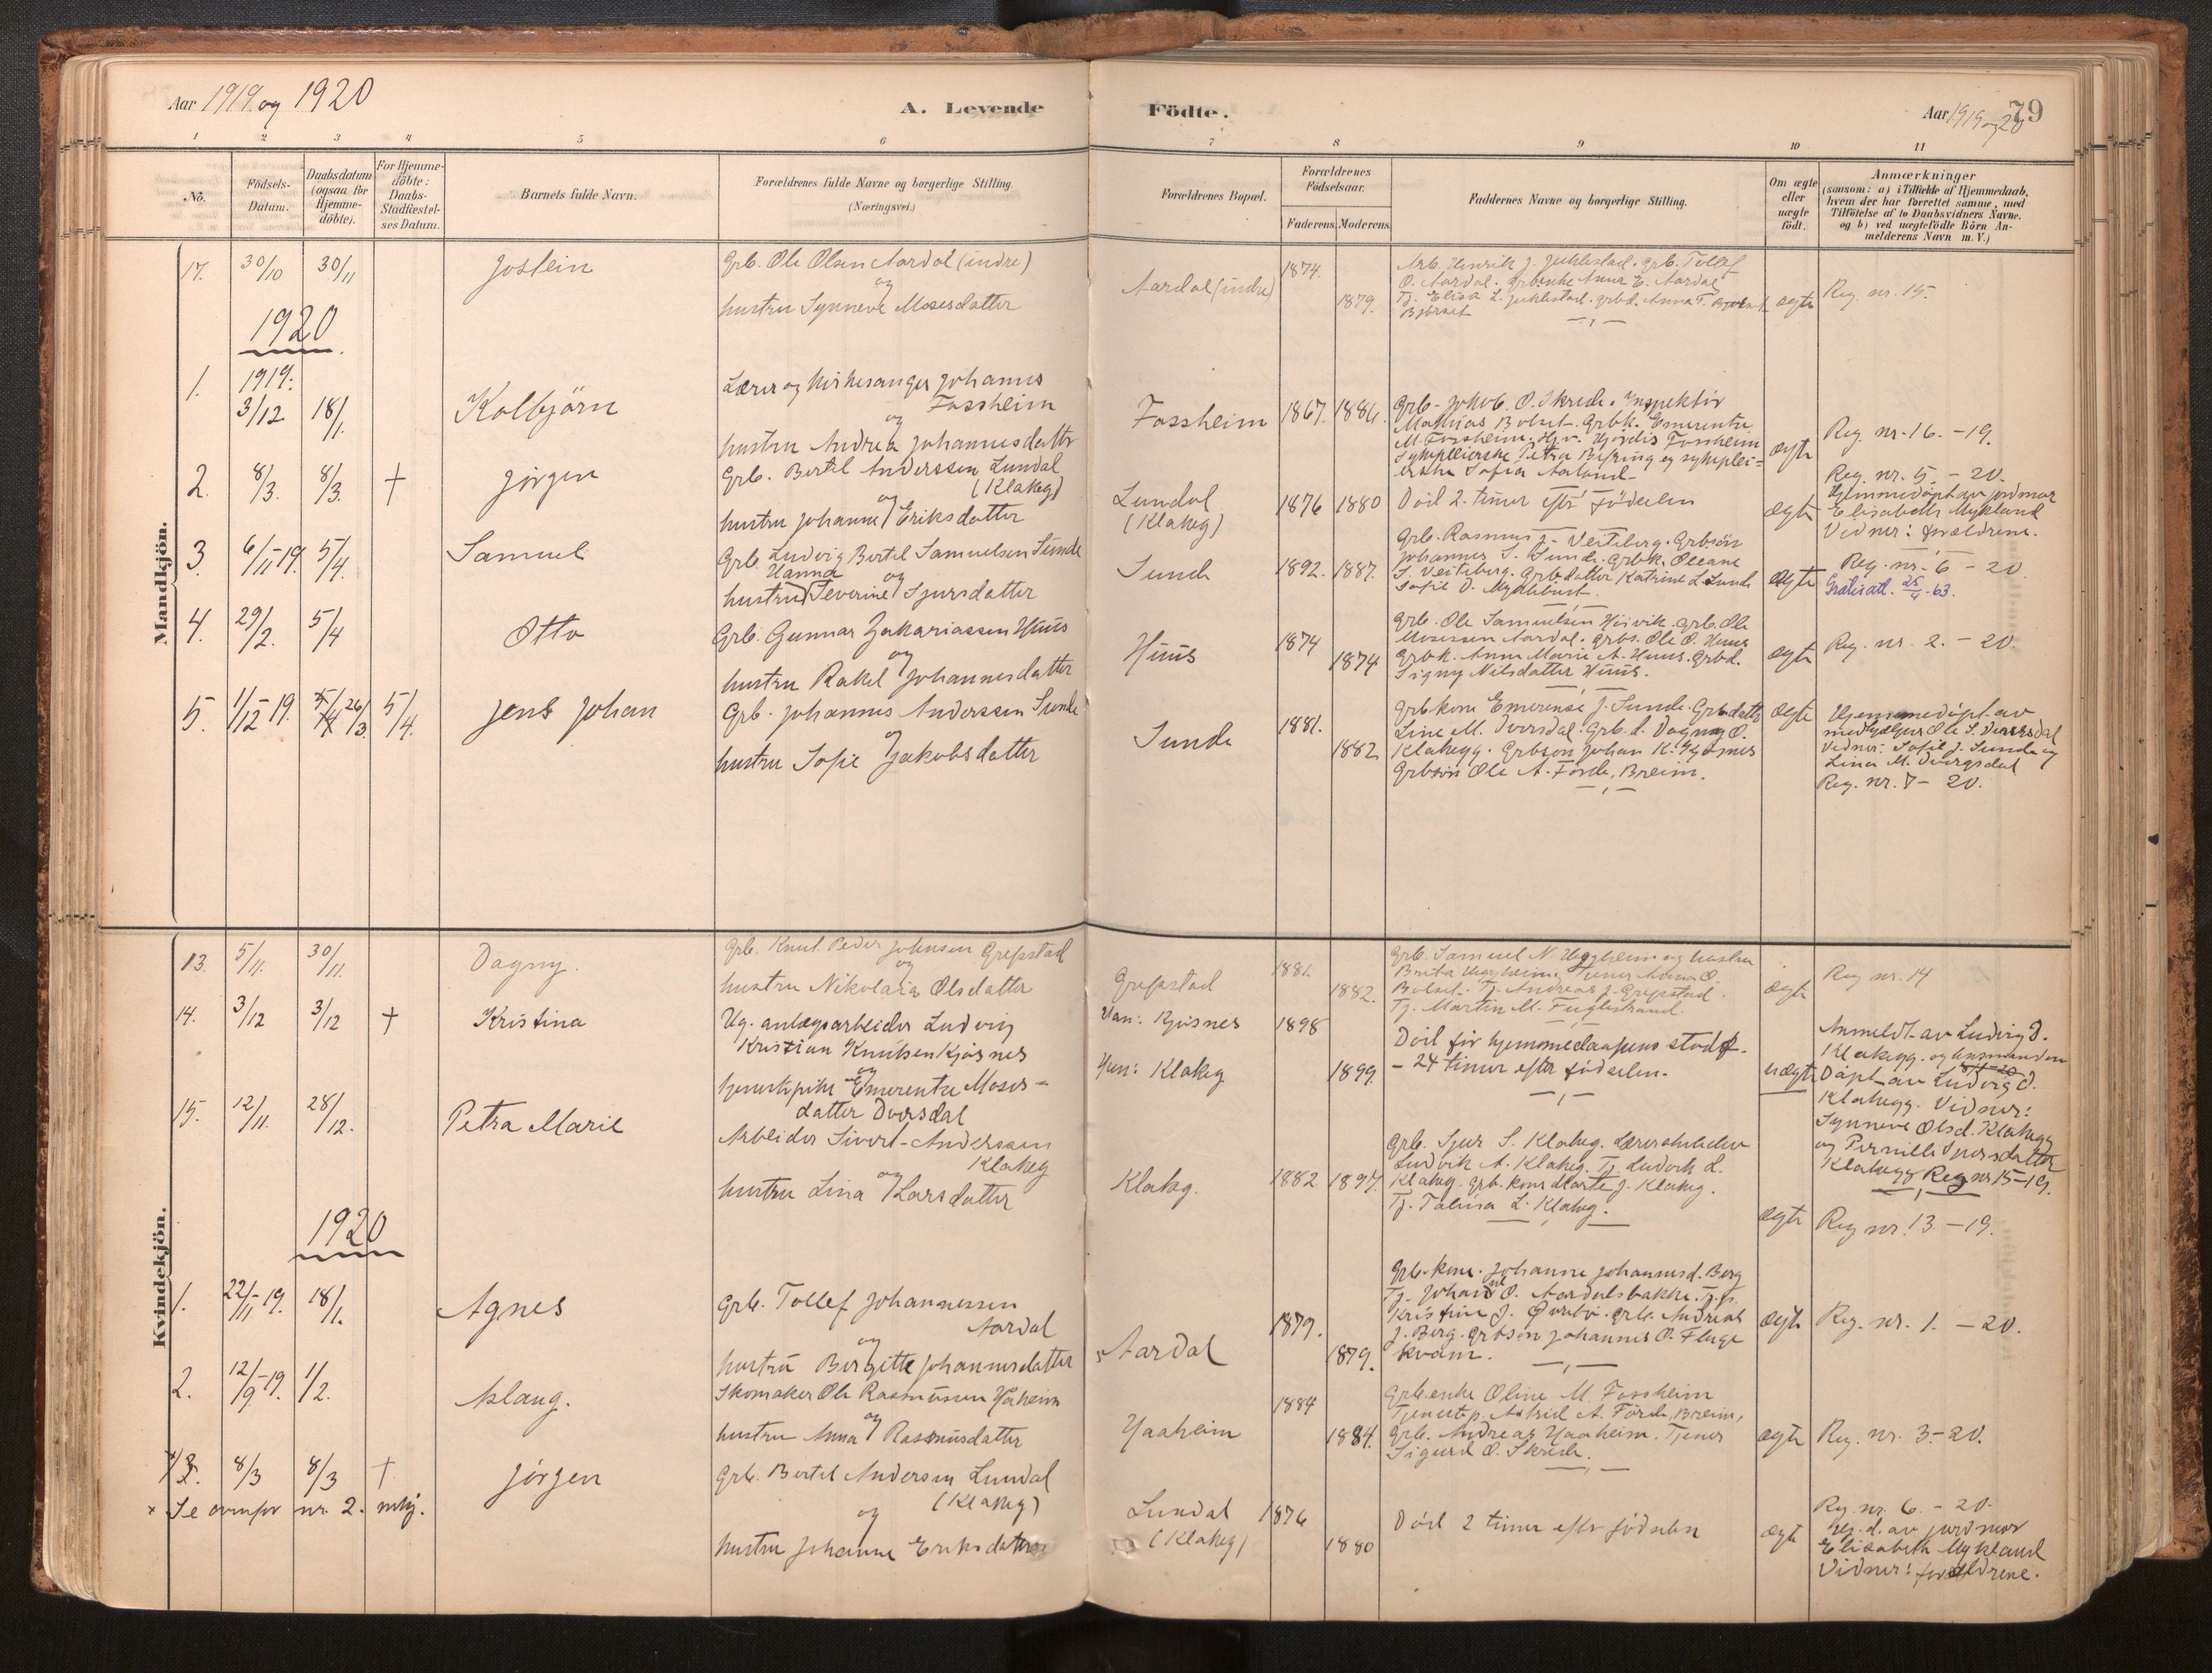 Aar 1919 og 1920
A. Levende
Födte.
Aar 1919 og 20
79
1 2 3 4 5 6 7 8 9 10 11
No.
Födsels-
Datum.
Daabsdatum
(ogsaa for
Hjemme-
döbte).
For Hjemme-
döbte:
Daabs-
Stadfæstel-
ses Datum.
Barnets fulde Navn.
Forældrenes fulde Navne og borgerlige Stilling.
(Næringsvei.)
Forældrenes Bopæl.
Forældrenes
Födselsaar.
Faderens. Moderens.
Faddernes Navne og borgerlige Stilling.
Om ægte
eller
uægte
födt.
Anmærkninger
(saasom: a) i Tilfælde af Hjemmedaab,
hvem der har forrettet samme, med
Tilföielse af to Daabsvidners Navne.
og b) ved uægtefödte Börn An-
melderens Navn m. V.)
Mandkjön.
17. 30/10 30/11 Jostein
Grb. Ole Olsen Aardal (indre)
og
hustru Synneve Mosesdatter
Aardal (indre) 1874. 1879.
O. Aardal. Grbenke Anna E. Aardal
ægte Reg. nr. 15.
1920
1. 1919: 3/12 18/1. Kolbjörn
Lærer og kirkesanger Johannes
Fossheim
og
hustru Andrea Johannesdatter
Fossheim 1867. 1886.
Grb. Jakob O. Skrede. Inspektör
Mathias Bolset. Grbk. Emerentse
M. Fossheim. Hjördis Fossheim
ægte Reg. nr. 16. - 19.
2. 8/3. 8/3. † Jörgen
Grb. Bertel Anderssen Lundal
(Klakeg)
og
hustru Johanne Eriksdatter
Lundal
(Klakeg) 1876 1880
Död 2 timer efter födselen
ægte
Reg. nr. 5. - 20.
Hjemmedöpt av jordmor
Elisabeth Mykland
Vidner: forældrene.
3. 6/11-19. 5/4. Samuel
Grb. Ludvig Bertel Samuelsen Sunde
Hanna og
hustru Severine Sjursdatter
Sunde 1892. 1887.
Grb. Rasmus J. Veiteberg. Grbsön
Johannes S. Sunde. Grbk. Oleane
S. Veiteberg. Grbdatter Katrine L. Sunde
Sofie D. Myklebust.
ægte
Reg. nr. 6 - 20.
Gratisatt. 25/4-63.
4. 29/2. 5/4 Otto
Grb. Gunnar Zakariassen Huus
og
hustru Rakel Johannesdatter
Huus 1874 1874
Grb. Ole Samuelsen Heivik. Grb. Ole
Mosessen Aardal. Grbs. Ole O. Huus
Grbk. Anne Marie A. Huus. Grbd.
Signy Nilsdatter Huus.
ægte Reg. nr. 2. - 20.
5. 1/12-19. 26/3. 5/4. Jens Johan
Grb. Johannes Anderssen Sunde
og
hustru Sofie Jakobsdatter
Sunde 1881. 1882.
Grbkone Emerense J. Sunde. Grbdatter
Line M. Dvergsdal. Grb. d. Dagny O.
Klakegg. Grbson Johan K. Gjösnes
Grbsön Ole A. Förde, Breim.
ægte
Hjemmedöpt av
Vidner: Sofie J. Sunde og
Lina M. Dvergsdal
Reg. nr. 7 - 20.
Kvindekjön.
13. 5/11. 30/11. Dagny.
Grb. Knut Peder Johnsen Grepstad
og
hustru Nikolaia Olsdatter
Grepstad 1881. 1882.
Grb. Samuel N. Heggheim og hustru
Tj. Martin M. Fuglestrand.
ægte Reg nr. 14
14. 3/12 3/12 † Kristina
Ug. anlægsarbeider Ludvig
Kristian Knutsen Kjösnes
og
tjenestepike Emerentse Moses-
datter Dvergsdal
Han: Kjösnes
Hun: Klakeg 1898 1899.
Död för hjemmedaapens stadf.
- 24 timer efter födselen.
uægte
Anmeldt av Ludvig O.
Klakegg.
Döpt av Ludvig O.
Klakegg. Vidner:
Synneve Olsd. Klakegg
og Pernille Sjursdatter
Klakegg Reg nr 15-19.
15. 12/11. 28/12. Petra Marie
Arbeider Sivert Anderssen
Klakeg
og
hustru Lina Larsdatter
Klakeg. 1882 1897.
Grb. Sjur S. Klakeg.
Ludvik A. Klakeg. Tj. Ludvik L.
Klakeg. Grb. kone Marte J. Klakeg.
Tj. Talina L. Klakeg.
ægte Reg nr. 13. - 19.
1920
1. 22/11-19. 18/1. Agnes
Grb. Tollef Johannessen
Aardal
og
hustru Bergitte Johannesdatter
Aardal 1879. 1879.
Grb. kone. Johanne Johannesd. Berg
Tj. Johan O. Aardalsbakke. Tj.p.
Kristine J. Grb. Andreas
J. Berg. Grbsön Johannes O. Fluge
kvam.
ægte Reg. nr. 1. - 20.
2. 12/9-19. 1/2. Aslaug.
Skomaker Ole Rasmussen Haaheim
og
hustru Anna Rasmusdatter
Haaheim 1884 1884.
Grb.enke Oline M. Fossheim
Tjenestep. Astrid A. Förde, Breim,
Grb. Andreas Haaheim. Tjener
Sigurd O. Skrede.
ægte Reg. nr. 3. - 20.
x 3. 8/3 8/3 † Jörgen
x Se ovenfor nr. 2. mkj.
Grb. Bertel Andersen Lundal
(Klakeg)
og
hustru Johanne Eriksdatter
Lundal
(Klakeg) 1876 1880
Död 2 timer efter födselen
ægte
Reg. nr. 6. - 20.
Hj. d. av jordmor
Elisabeth Mykland
Vidner: forældrene.